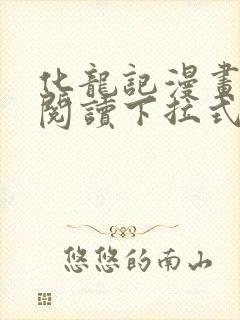 化龍記漫畫
閱讀下拉式
悠悠的南山